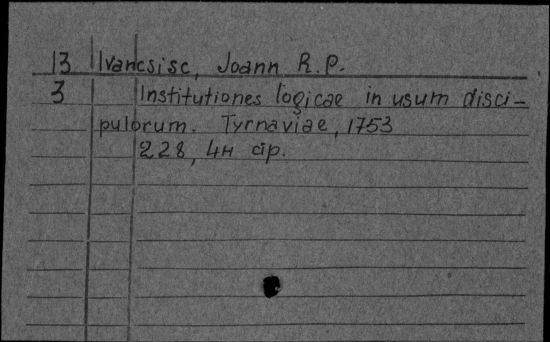 13 Ivancsisc, Joann R.P.
3 Institutiones logicae in usum disci-
pulorum. Tyrnaviae, 1753
228, 4н стр.